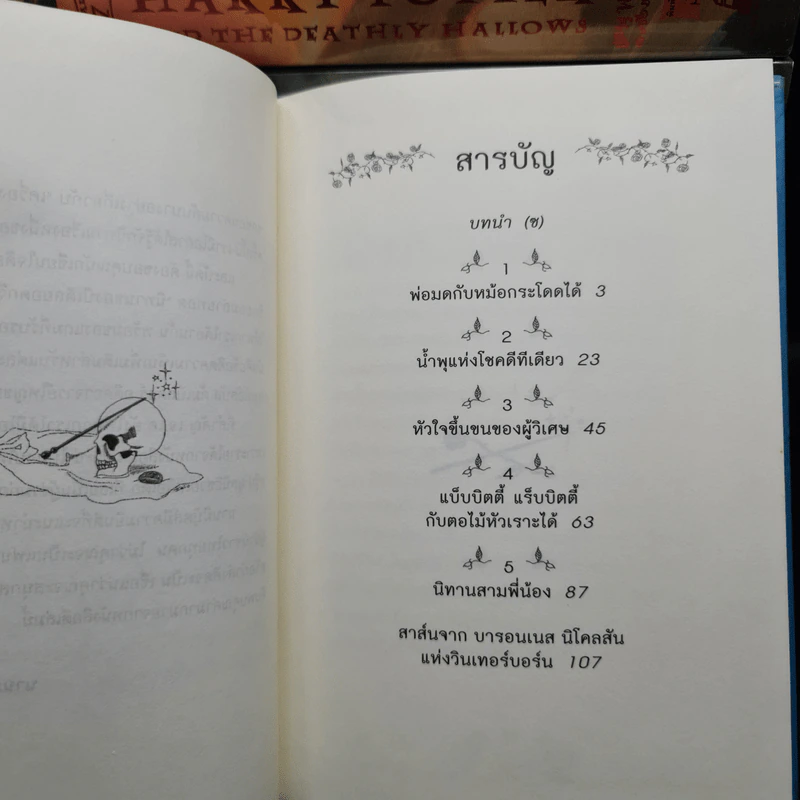 HARRY POTTER
THE DEATHLY HALLOWS
สารบัญ
บทนำ (ซ)
1
พ่อมดกับหม้อกระโดดได้ 3
2
น้ำพุแห่งโชคดีทีเดียว 23
3
หัวใจขึ้นขนของผู้วิเศษ 45
4
แบ็บบิตตี้ แร็บบิตตี้
กับตอไม้หัวเราะได้ 63
5
นิทานสามพี่น้อง 87
สาส์นจาก บารอนเนส นิโคลสัน
แห่งวินเทอร์บอร์น 107